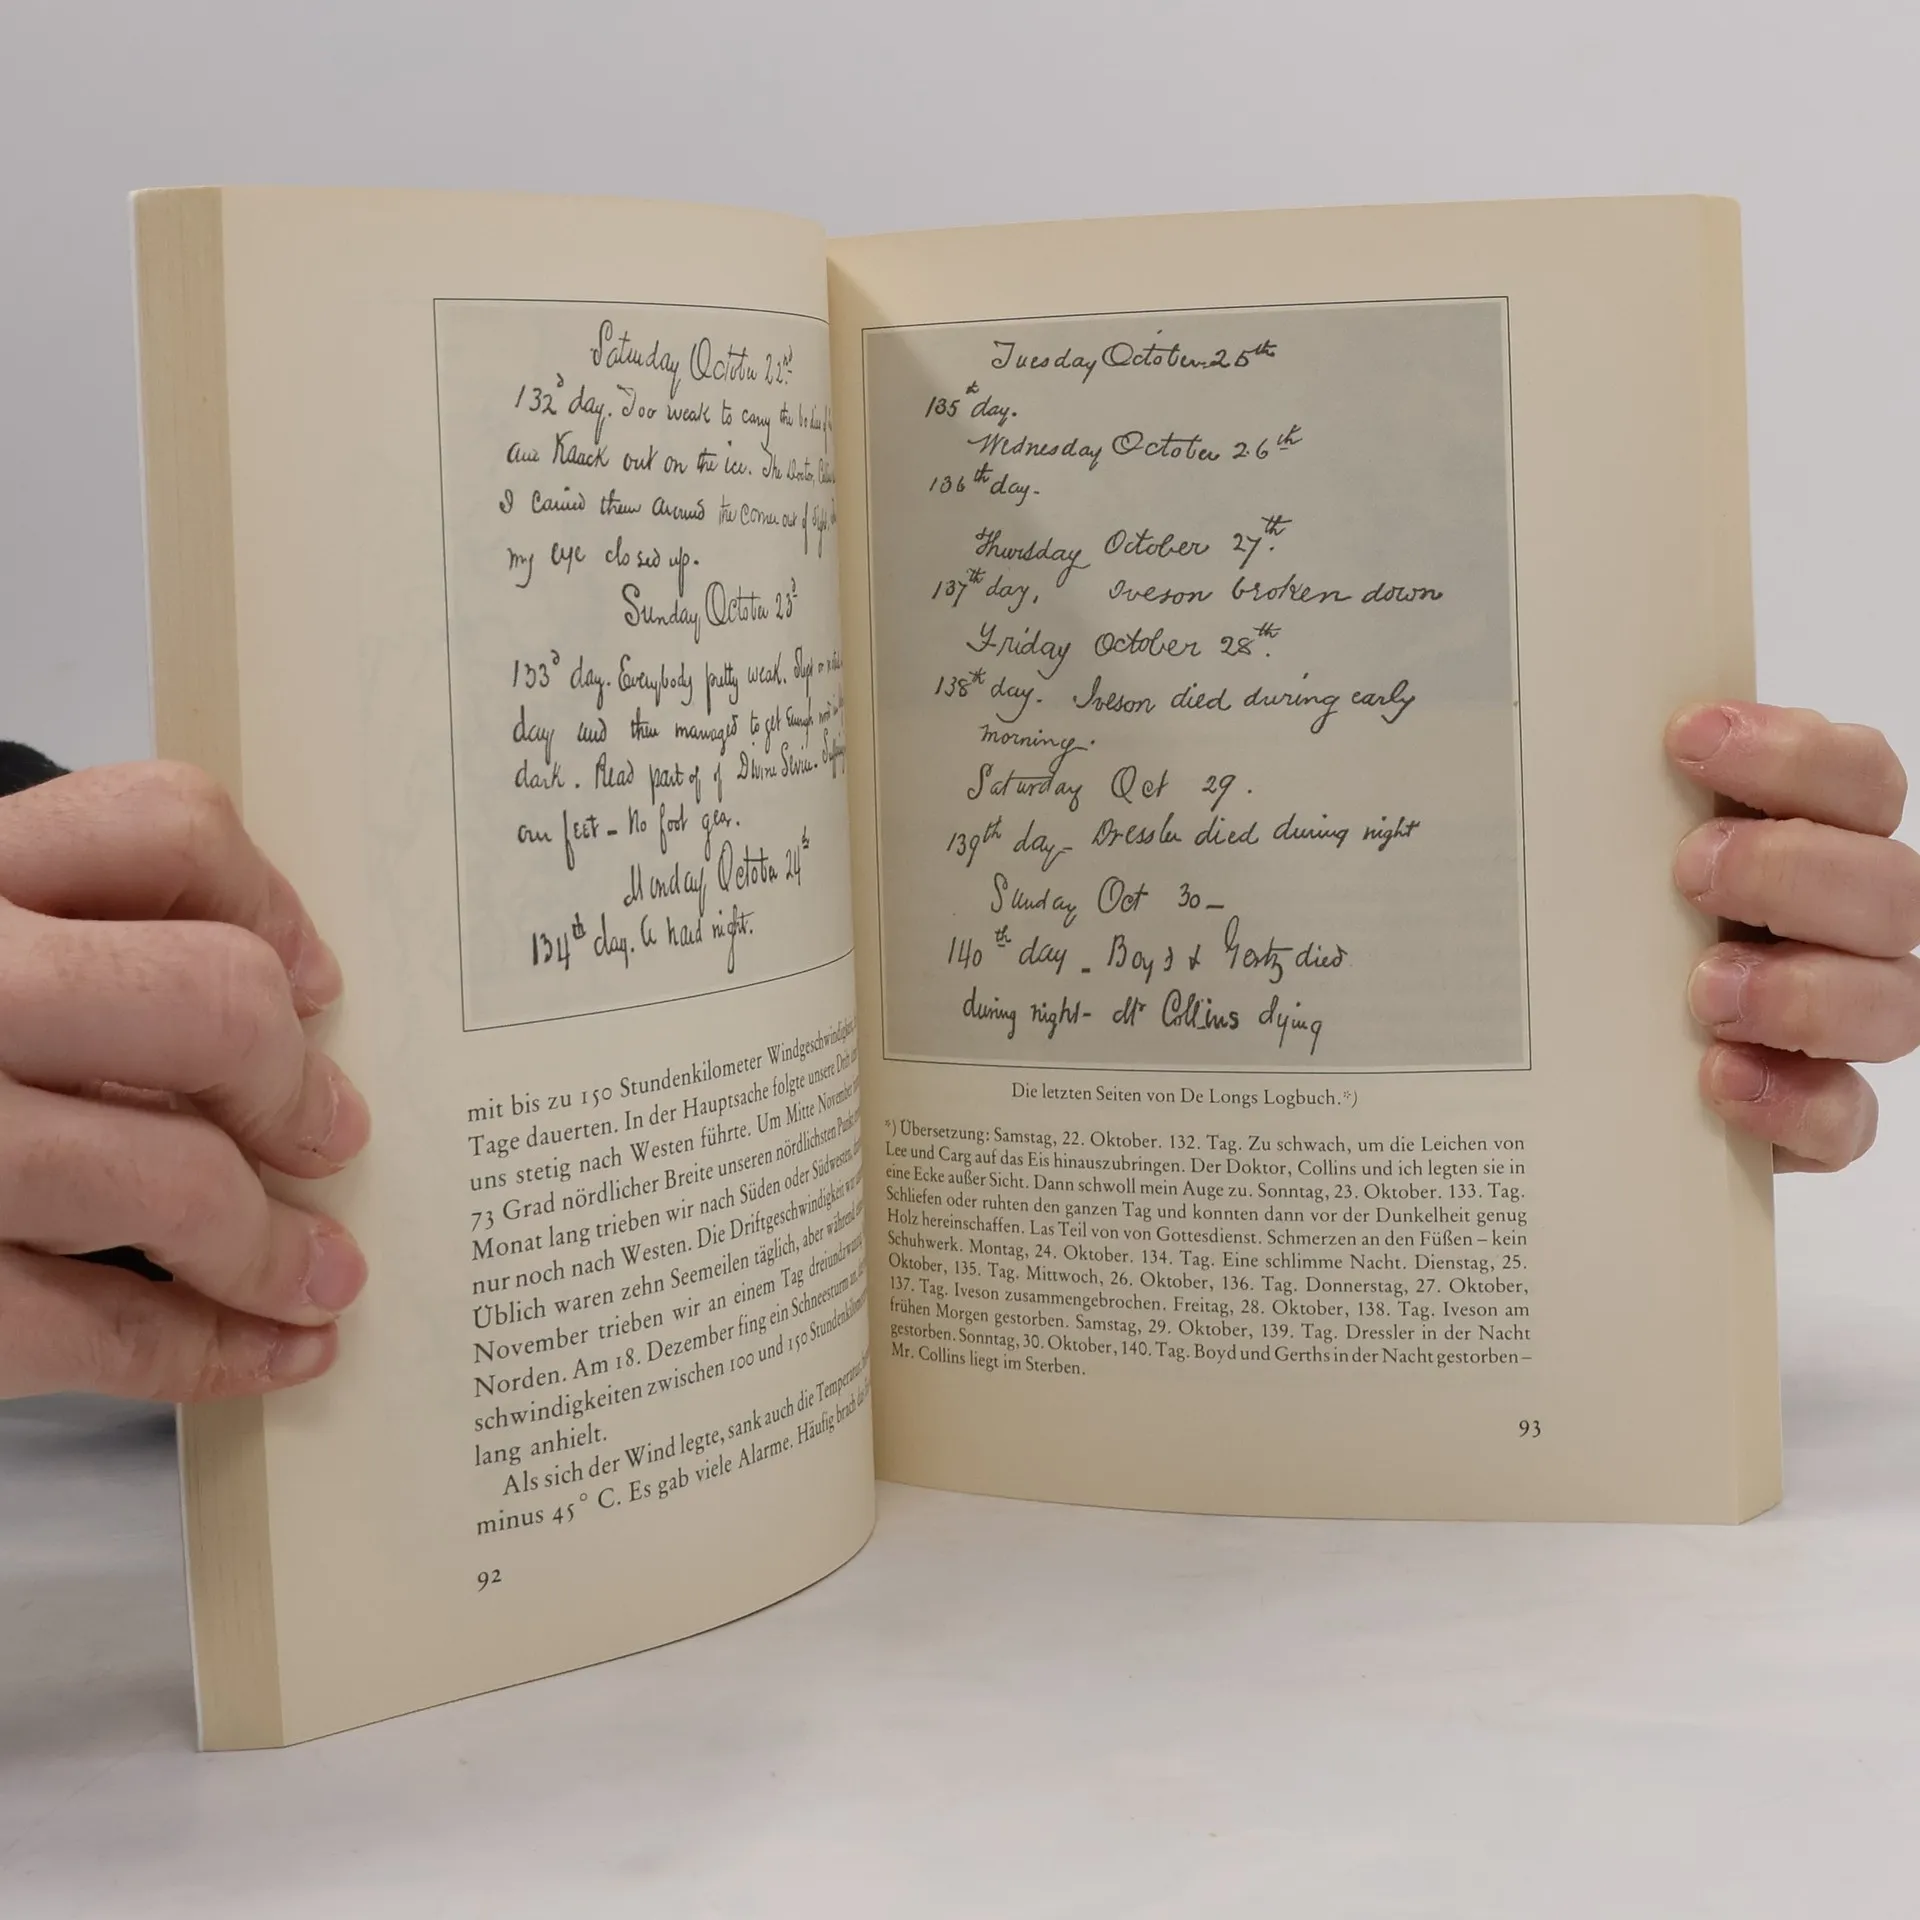 Saturday October 22nd
132d day. Too weak to carry the bodies of
and Kaack out on the ice. The Doctor, Collins
I carried them around the corner out of sight.
my eye closed up.
Sunday October 23d
133d day. Everybody pretty weak. Slept or
day and then managed to get enough wood in
dark. Read part of of Divine Service. Suffering
our feet – No foot gear.
Monday October 24th
134th day. A hard night.
mit bis zu 150 Stundenkilometer Windgeschwindigkeit
Tage dauerten. In der Hauptsache folgte unsere Drift
uns stetig nach Westen führte. Um Mitte November
73 Grad nördlicher Breite unseren nördlichsten Punkt
Monat lang trieben wir nach Süden oder Südwesten,
nur noch nach Westen. Die Driftgeschwindigkeit
Üblich waren zehn Seemeilen täglich, aber während
November trieben wir an einem Tag dreiundzwanzig
Norden. Am 18. Dezember fing ein Schneesturm an,
schwindigkeiten zwischen 100 und 150 Stundenkilometer
lang anhielt.
Als sich der Wind legte, sank auch die Temperatur.
minus 45° C. Es gab viele Alarme. Häufig brach das
92
Tuesday October 25th
135th day.
Wednesday October 26th
136th day-
Thursday October 27th.
137th day, Iveson broken down
Friday October 28th.
138th day. Iveson died during early
morning.
Saturday Oct 29.
139th day – Dressler died during night
Sunday Oct 30 –
140th day – Boyd & Gertz died
during night – Mr Collins dying
Die letzten Seiten von De Longs Logbuch.*)
*) Übersetzung: Samstag, 22. Oktober. 132. Tag. Zu schwach, um die Leichen von
Lee und Carg auf das Eis hinauszubringen. Der Doktor, Collins und ich legten sie in
eine Ecke außer Sicht. Dann schwoll mein Auge zu. Sonntag, 23. Oktober. 133. Tag.
Schliefen oder ruhten den ganzen Tag und konnten dann vor der Dunkelheit genug
Holz hereinschaffen. Las Teil von von Gottesdienst. Schmerzen an den Füßen – kein
Schuhwerk. Montag, 24. Oktober. 134. Tag. Eine schlimme Nacht. Dienstag, 25.
Oktober, 135. Tag. Mittwoch, 26. Oktober, 136. Tag. Donnerstag, 27. Oktober,
137. Tag. Iveson zusammengebrochen. Freitag, 28. Oktober, 138. Tag. Iveson am
frühen Morgen gestorben. Samstag, 29. Oktober, 139. Tag. Dressler in der Nacht
gestorben. Sonntag, 30. Oktober, 140. Tag. Boyd und Gerths in der Nacht gestorben –
Mr. Collins liegt im Sterben.
93